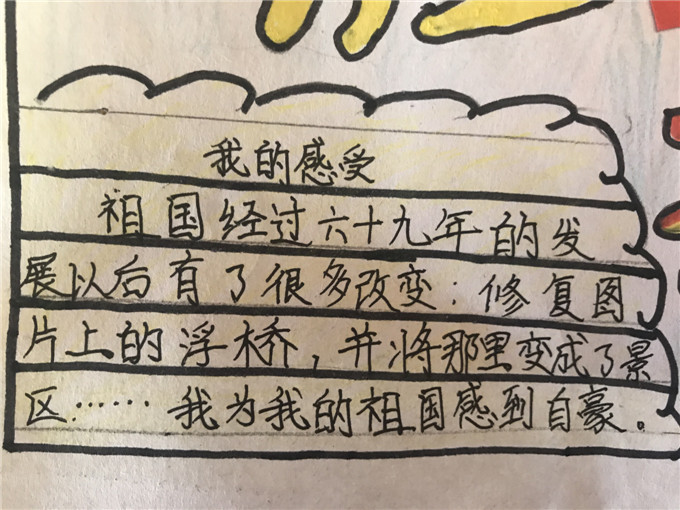 我的感受
祖国经过六十九年的发
展以后有了很多改变：修复图
片上的浮桥，并将那里变成了景
区……我为我的祖国感到自豪。